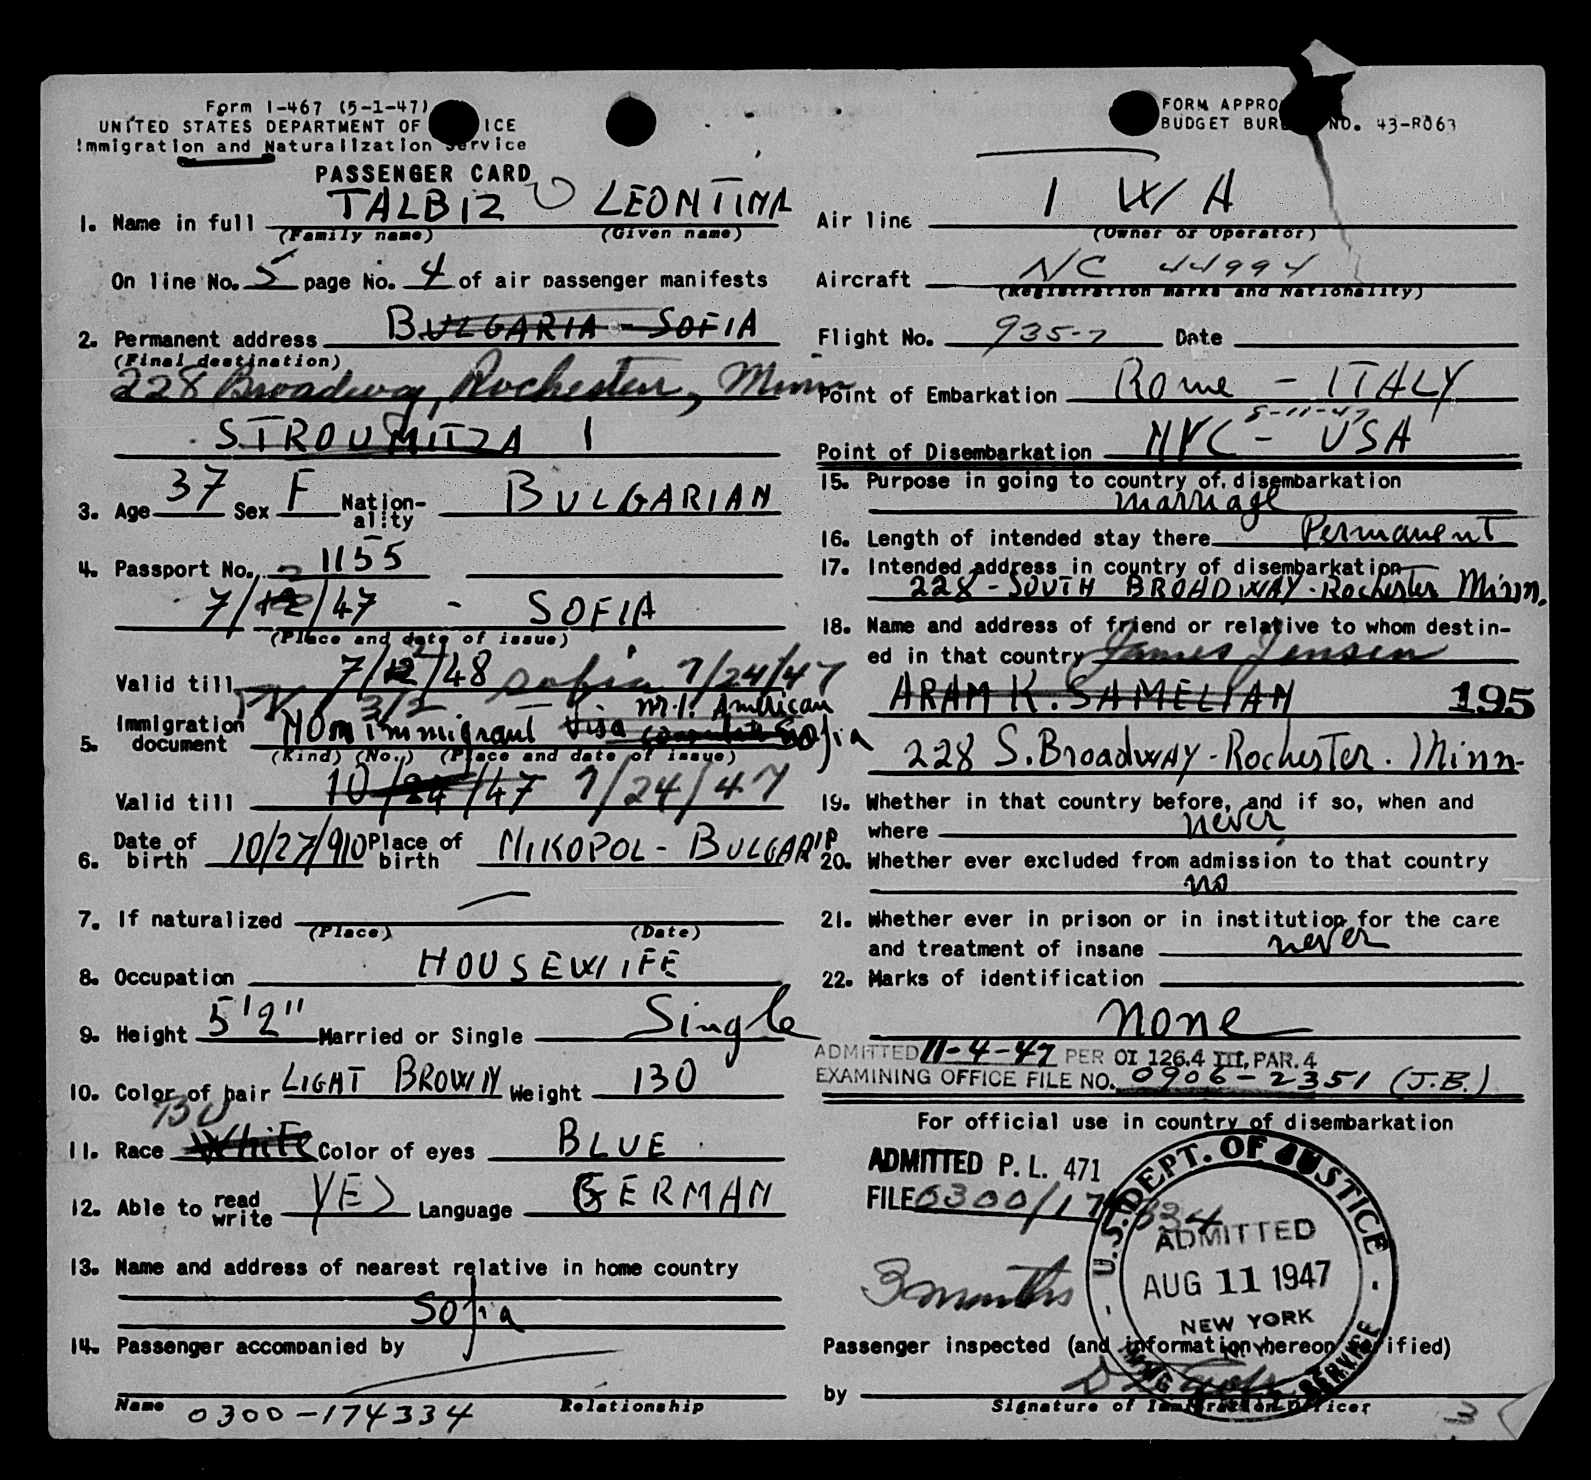 Form I-467 (5-1-47)
UNITED STATES DEPARTMENT OF ICE
Immigration and Naturalization Service
PASSENGER CARD
FORM APPRO
BUDGET BUR NO. 43-R063
1. Name in full TALBIZ LEONTINA
(Family name) (Given name)
On line No. 5 page No. 4 of air passenger manifests
2. Permanent address BULGARIA - SOFIA
(Final destination)
228 Broadway, Rochester, Minn
STROUMITZA 1
3. Age 37 Sex F Nation-ality BULGARIAN
4. Passport No. 1155
7/12/47 - SOFIA
(Place and date of issue)
Valid till 7/12/48 Sofia 7/24/47
5. Immigration document Nonimmigrant Visa M.I. American Sofia
(Kind) (No.) (Place and date of issue)
Valid till 10/24/47 7/24/47
6. Date of birth 10/27/910 Place of birth NIKOPOL - BULGARIA
7. If naturalized
(Place) (Date)
8. Occupation HOUSEWIFE
9. Height 5'2" Married or Single Single
10. Color of hair LIGHT BROWN Weight 130
11. Race White Color of eyes BLUE
12. Able to read write YES Language GERMAN
13. Name and address of nearest relative in home country
Sofia
14. Passenger accompanied by
Name Relationship
0300-174334
Air line TWA
(Owner or Operator)
Aircraft NC 44994
(Registration marks and Nationality)
Flight No. 935-7 Date
Point of Embarkation Rome - ITALY
8-11-47
Point of Disembarkation NYC - USA
15. Purpose in going to country of disembarkation
marriage
16. Length of intended stay there Permanent
17. Intended address in country of disembarkation
228 - SOUTH BROADWAY - Rochester Minn.
18. Name and address of friend or relative to whom destin-
ed in that country James Jensen
ARAM K. SAMELIAN 195
228 S. Broadway - Rochester. Minn-
19. Whether in that country before, and if so, when and
where never
20. Whether ever excluded from admission to that country
no
21. Whether ever in prison or in institution for the care
and treatment of insane never
22. Marks of identification
none
ADMITTED 11-4-47 PER OI 126.4 III, PAR. 4
EXAMINING OFFICE FILE NO. 0906-2351 (J.B.)
For official use in country of disembarkation
ADMITTED P. L. 471
FILE 0300/174334
3 months
U.S. DEPT. OF JUSTICE
ADMITTED
AUG 11 1947
NEW YORK
N.Y.
IMMIG SERVICE
Passenger inspected (and information hereon verified)
by
Signature of Immigration Officer
3